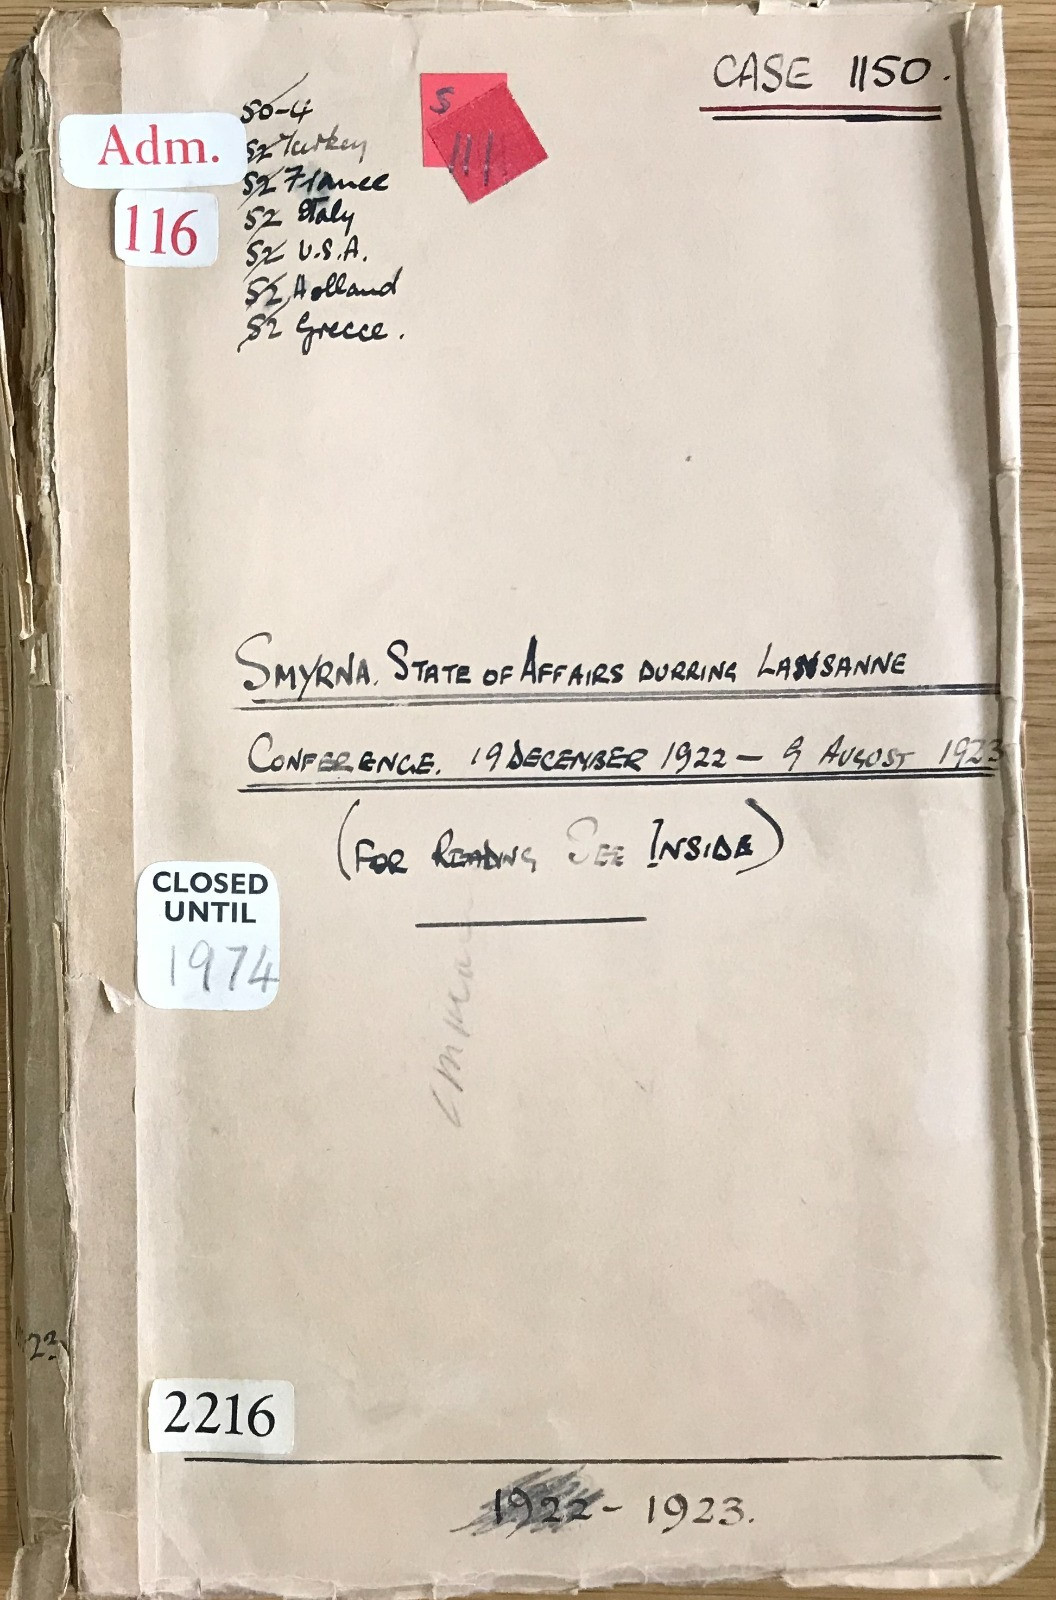 CASE 1150.
50-4
52 Turkey
52 France
52 Italy
52 U.S.A.
52 Holland
52 Greece.
S
Adm.
116
SMYRNA. STATE OF AFFAIRS DURRING LAUSANNE
CONFERENCE. 19 DECEMBER 1922 - 9 AUGUST 1923
(FOR READING SEE INSIDE)
CLOSED
UNTIL
1974
23
2216
1922 - 1923.